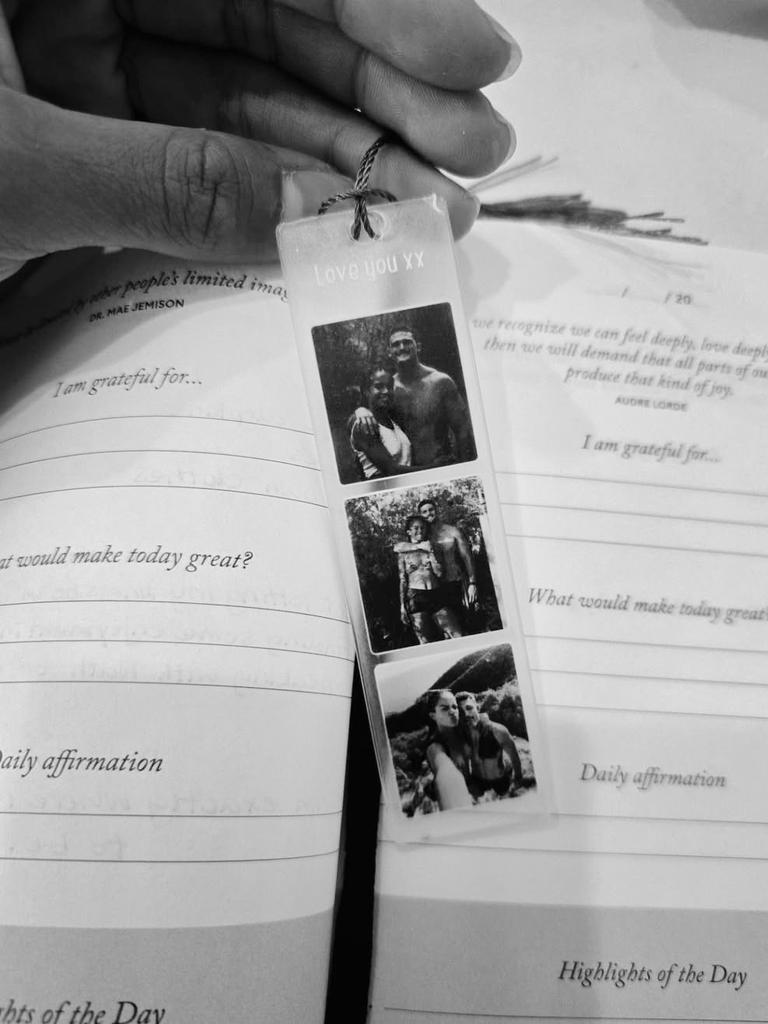 Love you xx
by other people's limited
DR. MAE JEMISON
I am grateful for...
at would make today great?
Daily affirmation
hts of the Day
/ / 20
we recognize we can feel deeply, love deeply
then we will demand that all parts of ou
produce that kind of joy.
AUDRE LORDE
I am grateful for...
What would make today great?
Daily affirmation
Highlights of the Day